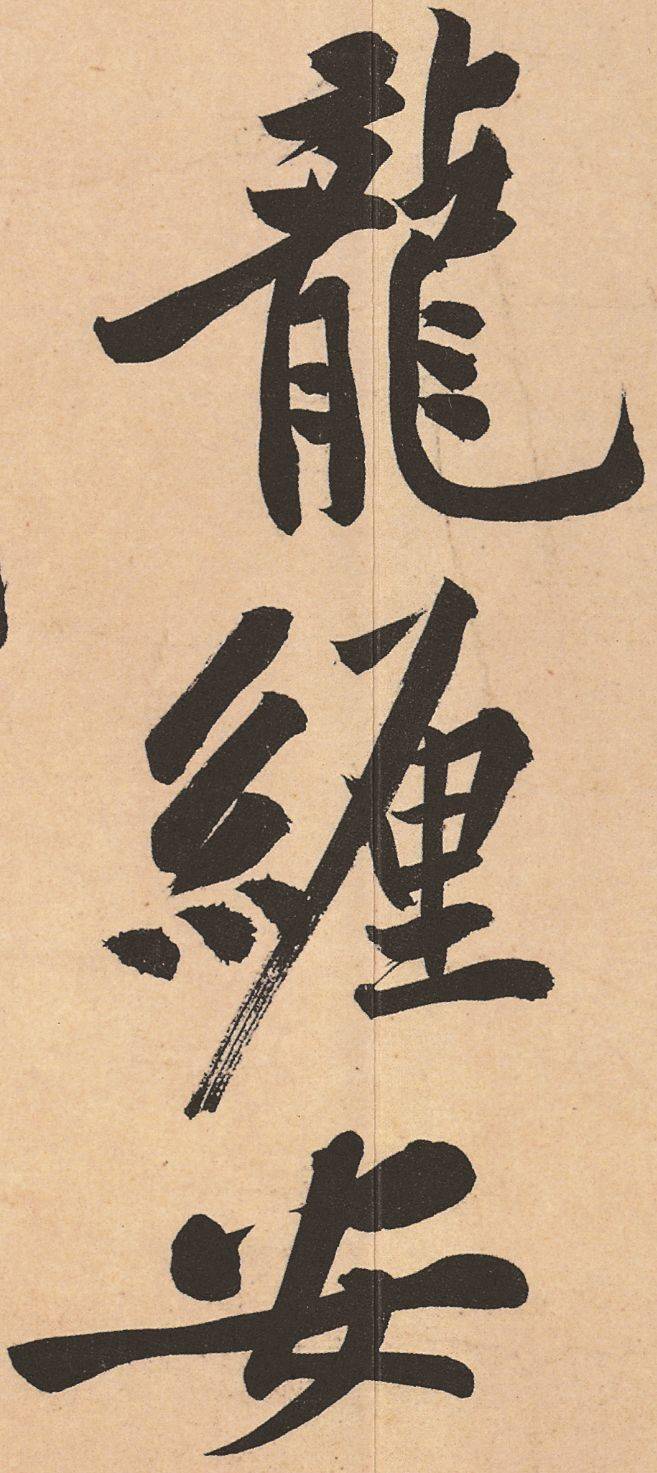 龍纏安